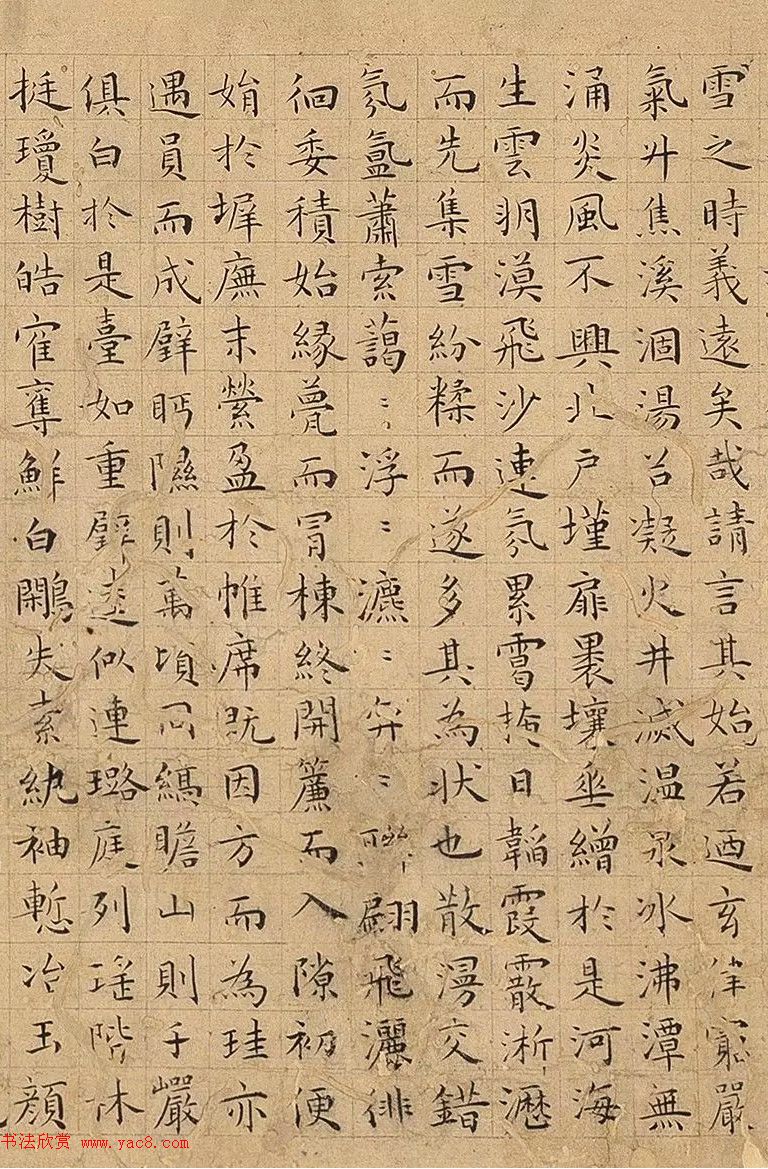 雪之時義遠矣哉請言其始若迺玄律窮嚴
氣升焦溪涸湯谷凝火井滅温泉冰沸潭無
涌炎風不興北戶墐扉裸壤垂繒於是河海
生雲朔漠飛沙連氛累靄揜日韜霞霰淅瀝
而先集雪紛糅而遂多其為狀也散漫交錯
氛氳蕭索藹〻浮〻瀌〻弈〻聯翩飛灑徘
徊委積始緣甍而冒棟終開簾而入隙初便
娟於墀廡末縈盈於帷席既因方而為珪亦
遇員而成璧眄隰則萬頃同縞瞻山則千巖
俱白於是臺如重璧逵似連璐庭列瑤階林
挺瓊樹皓隺奪鮮白鷳失素紈袖慙冶玉顏
书法欣赏 www.yac8.com